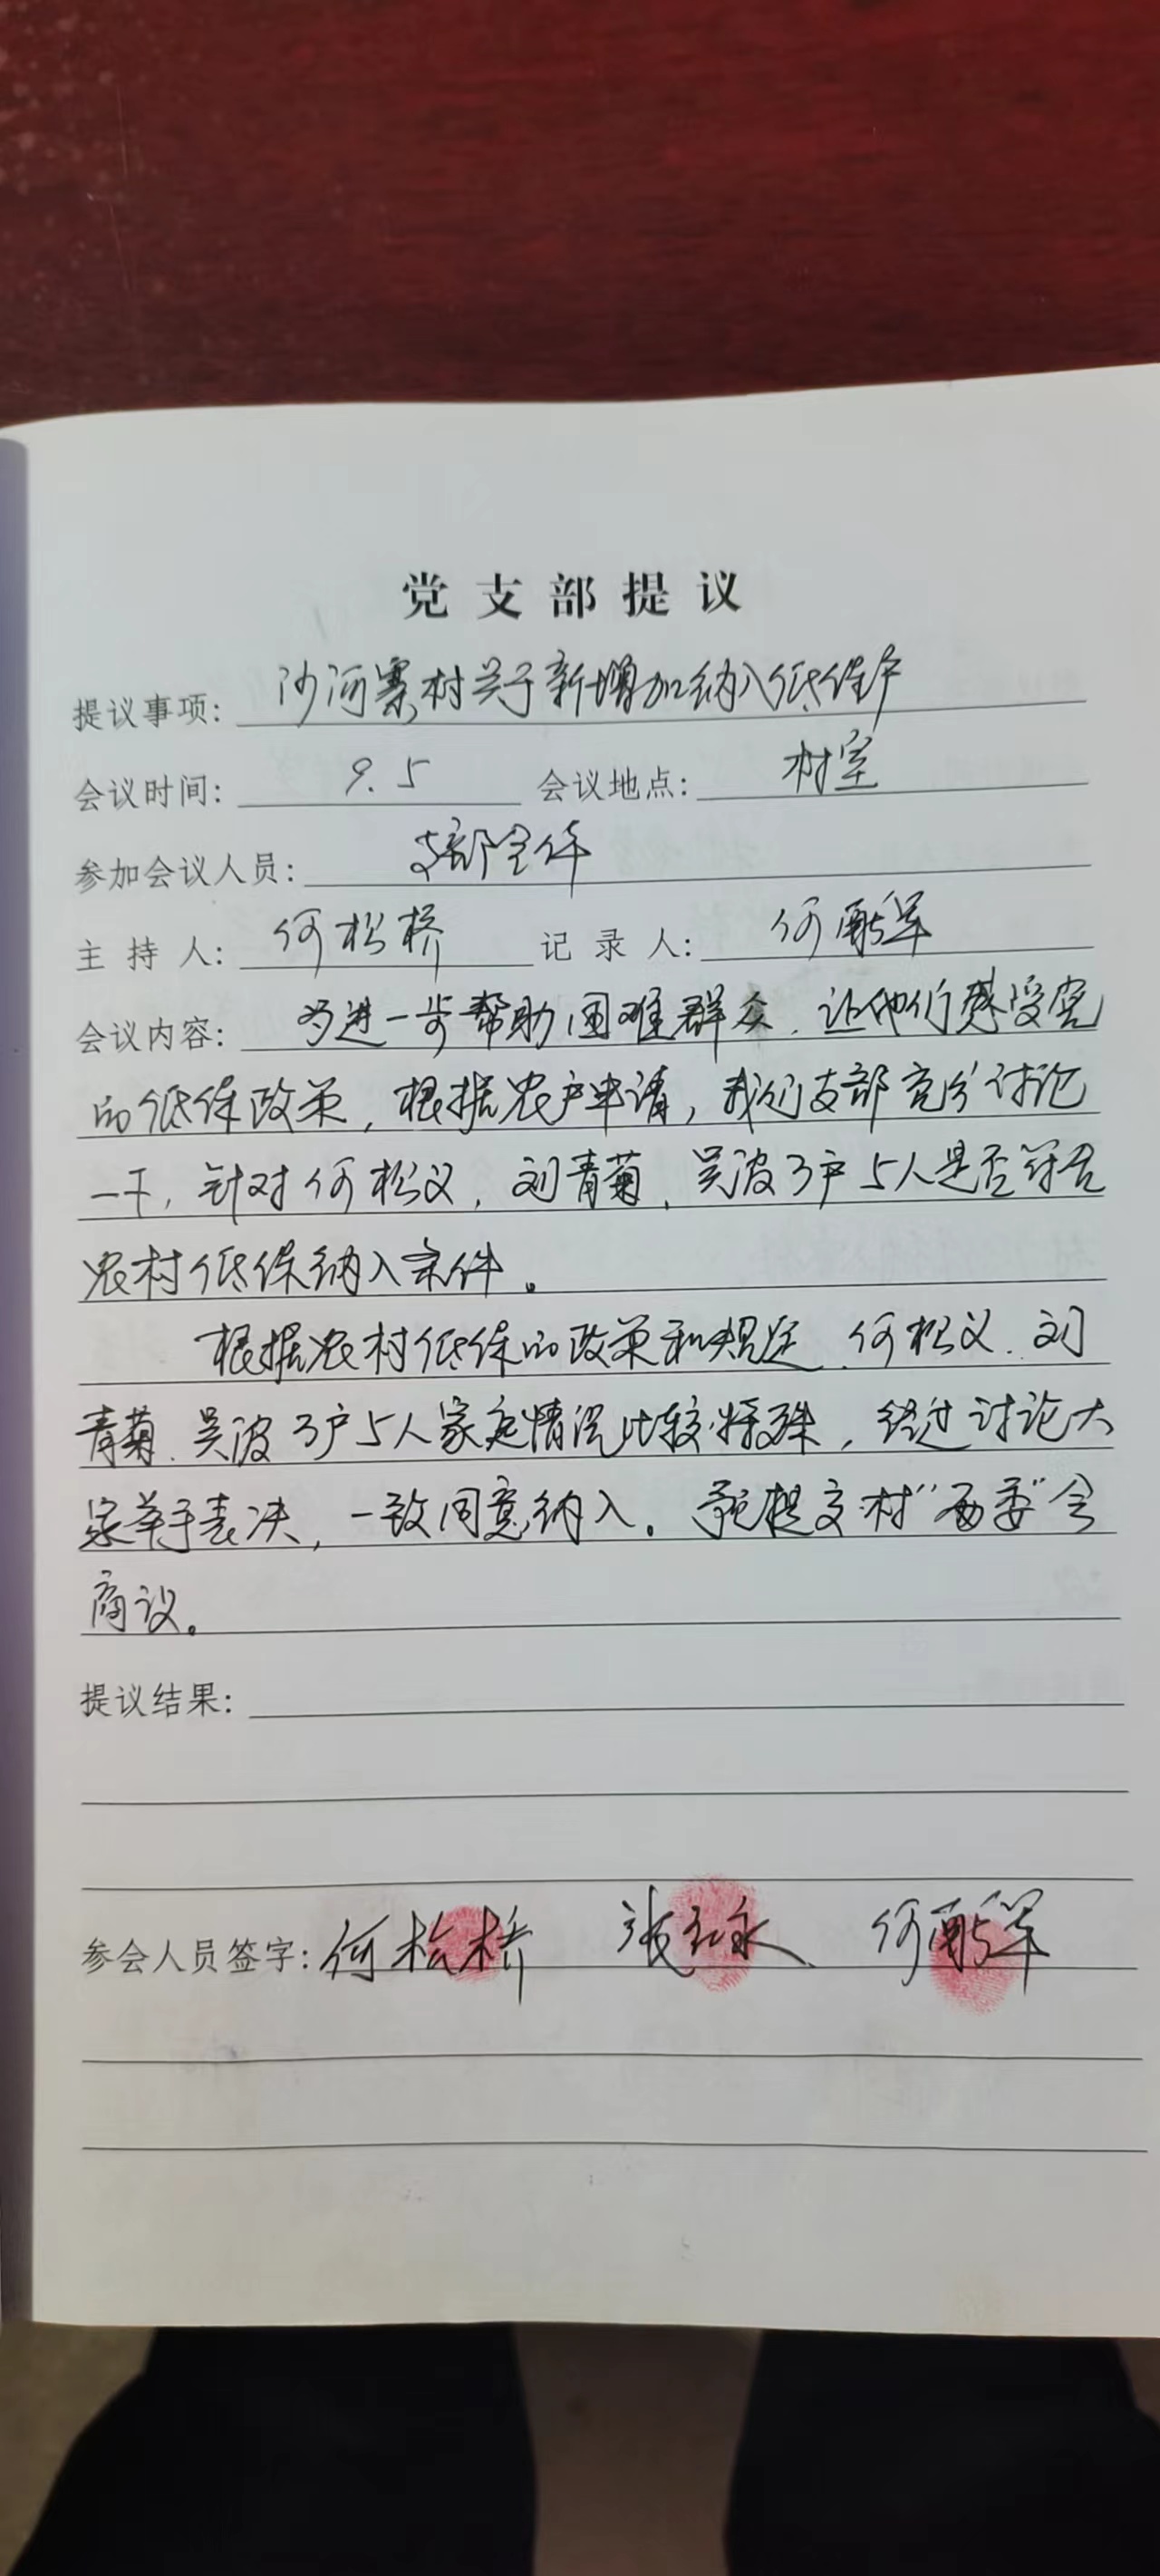 党支部提议
提议事项：沙河寨村关于新增加纳入低保户
会议时间：9.5 会议地点：村室
参加会议人员：支部全体
主持人：何松桥 记录人：何
会议内容：为进一步帮助困难群众，让他们感受党
的低保政策，根据农户申请，我们支部充分讨论
一下，针对何松义，刘青菊，吴波3户5人是否符合
农村低保纳入条件。
根据农村低保的政策和规定，何松义、刘
青菊、吴波3户5人家庭情况比较特殊，经过讨论大
家举手表决，一致同意纳入。提交村“两委”会
商议。
提议结果：
参会人员签字：何松桥 张 永 何